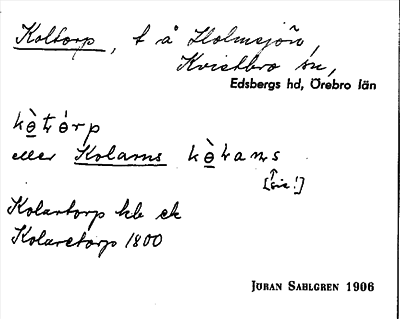 Koltorp, t å Holmsjön,
Kvistbro sn,
Edsbergs hd, Örebro län
kò̲ɫórp
eller Kolarns kò̲ɫaɳs
[sic!]
Kolartorp hb ek
Kolaretorp 1800
JÖRAN SAHLGREN 1906